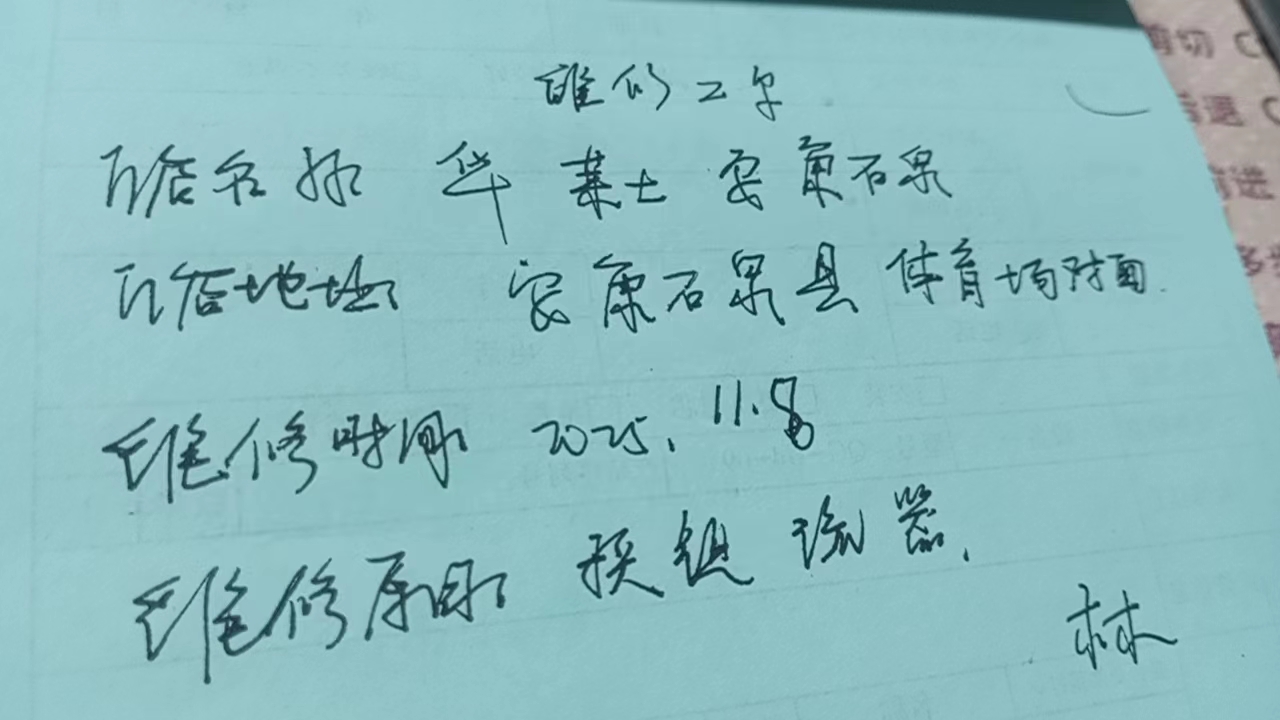 维修工单
门店名称 华莱士安康石泉
门店地址 安康石泉县体育场对面.
维修时间 2025.11.8
维修原因 换 镇流器.
林
剪切 C
后退 C
前进
多